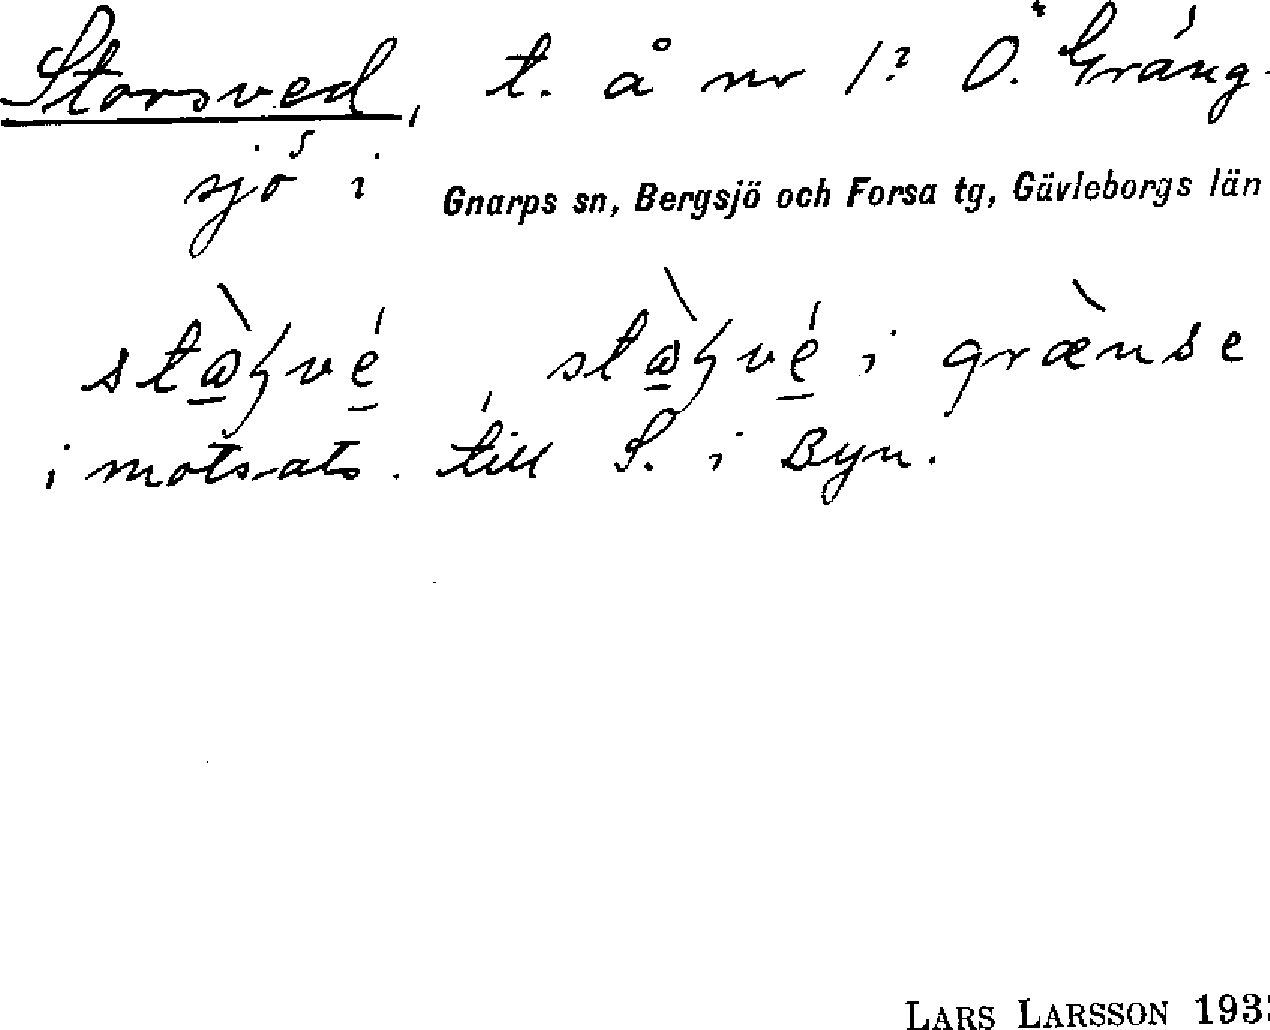 Storsved, t. å nr 1² Ö. Gräng-
sjö i Gnarps sn, Bergsjö och Forsa tg, Gävleborgs län
i grænse
i motsats. till S. i Byn.
LARS LARSSON 193